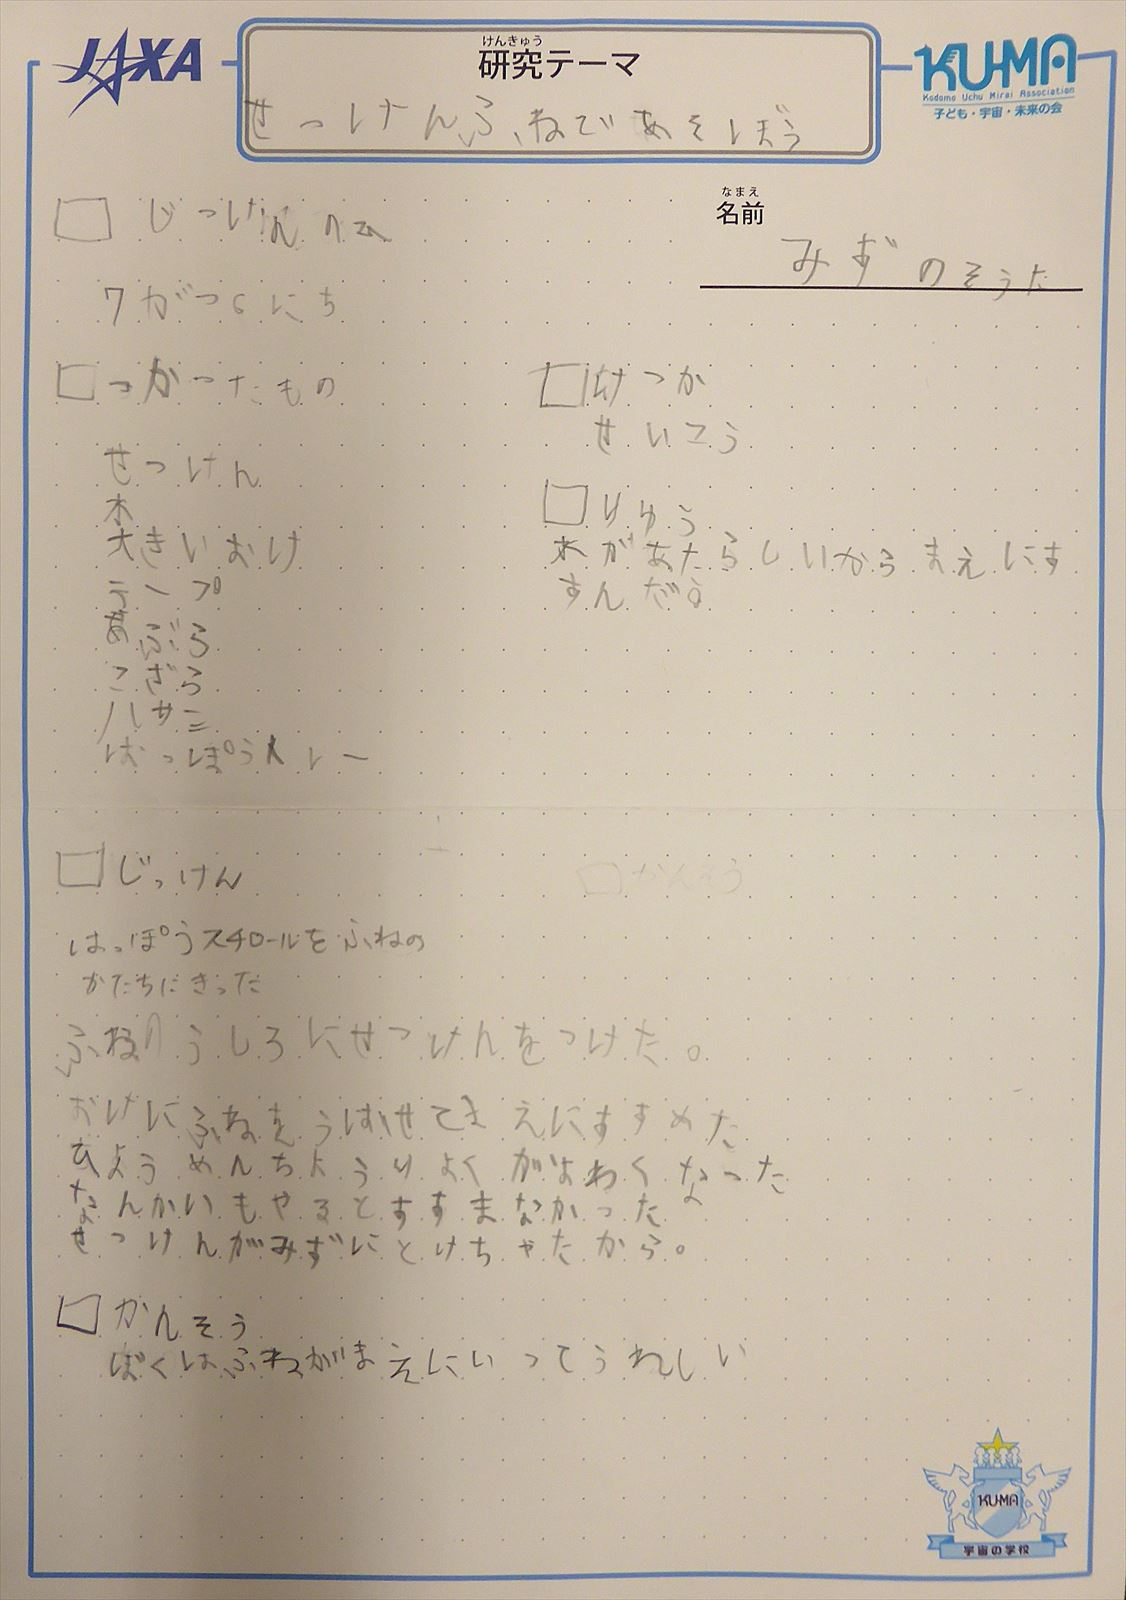 JAXA
けんきゅう
研究テーマ
KU-MA
Kodomo Uchu Mirai Association
子ども・宇宙・未来の会
せっけんふねであそぼう
なまえ
名前
みずのそうた
じっけんのひ
7がつ6にち
つかったもの
せっけん
木
大きいおけ
テープ
あぶら
こざら
ハサミ
はっぽうトレー
けつか
せいこう
りゆう
があたらしいからまえにす
すんだ。
じっけん
はっぽうスチロールをふねの
かたちにきった
ふねのうしろにせっけんをつけた。
おけにふねをうかせてまえにすすめた
ひょうめんちょうりょくがよわくなった
なんかいもやるとすすまなかった
せっけんがみずにとけちゃたから。
かんそう
かんそう
ぼくはふねがまえにいってうれしい
KU-MA
宇宙の学校